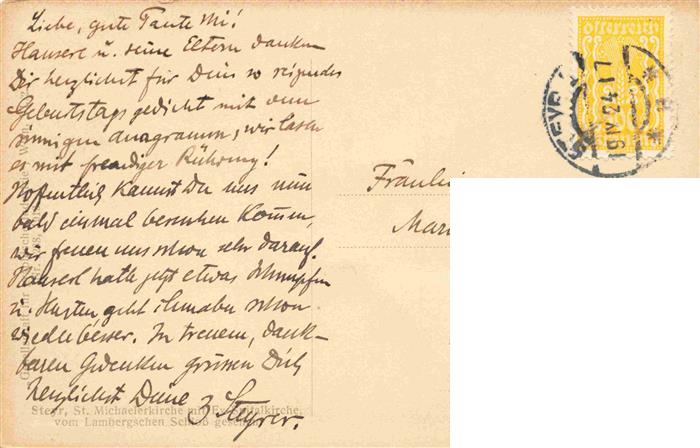 Liebe, gute Tante Mi!
Hauserl u. seine Eltern danken
Dir herzlichst für Dein so reizendes
Geburtstagsgedicht mit dem
sinnigen Anagramm, wir lasen
es mit freudiger Rührung!
Hoffentlich kannst Du uns nun
bald einmal besuchen kommen,
wir freuen uns schon sehr darauf.
Hauserl hatte jetzt etwas Schnupfen
u. Husten geht ihm aber schon
wieder besser. In treuem, dank-
baren Gedenken grüssen Dich
herzlichst Deine 3 Steyrer.
Steyr, St. Michaelerkirche mit Ex-Spitalkirche,
vom Lambergschen Schloß gesehen
Fräulein
Mari
österreich
STEYR
19 IV 24 17